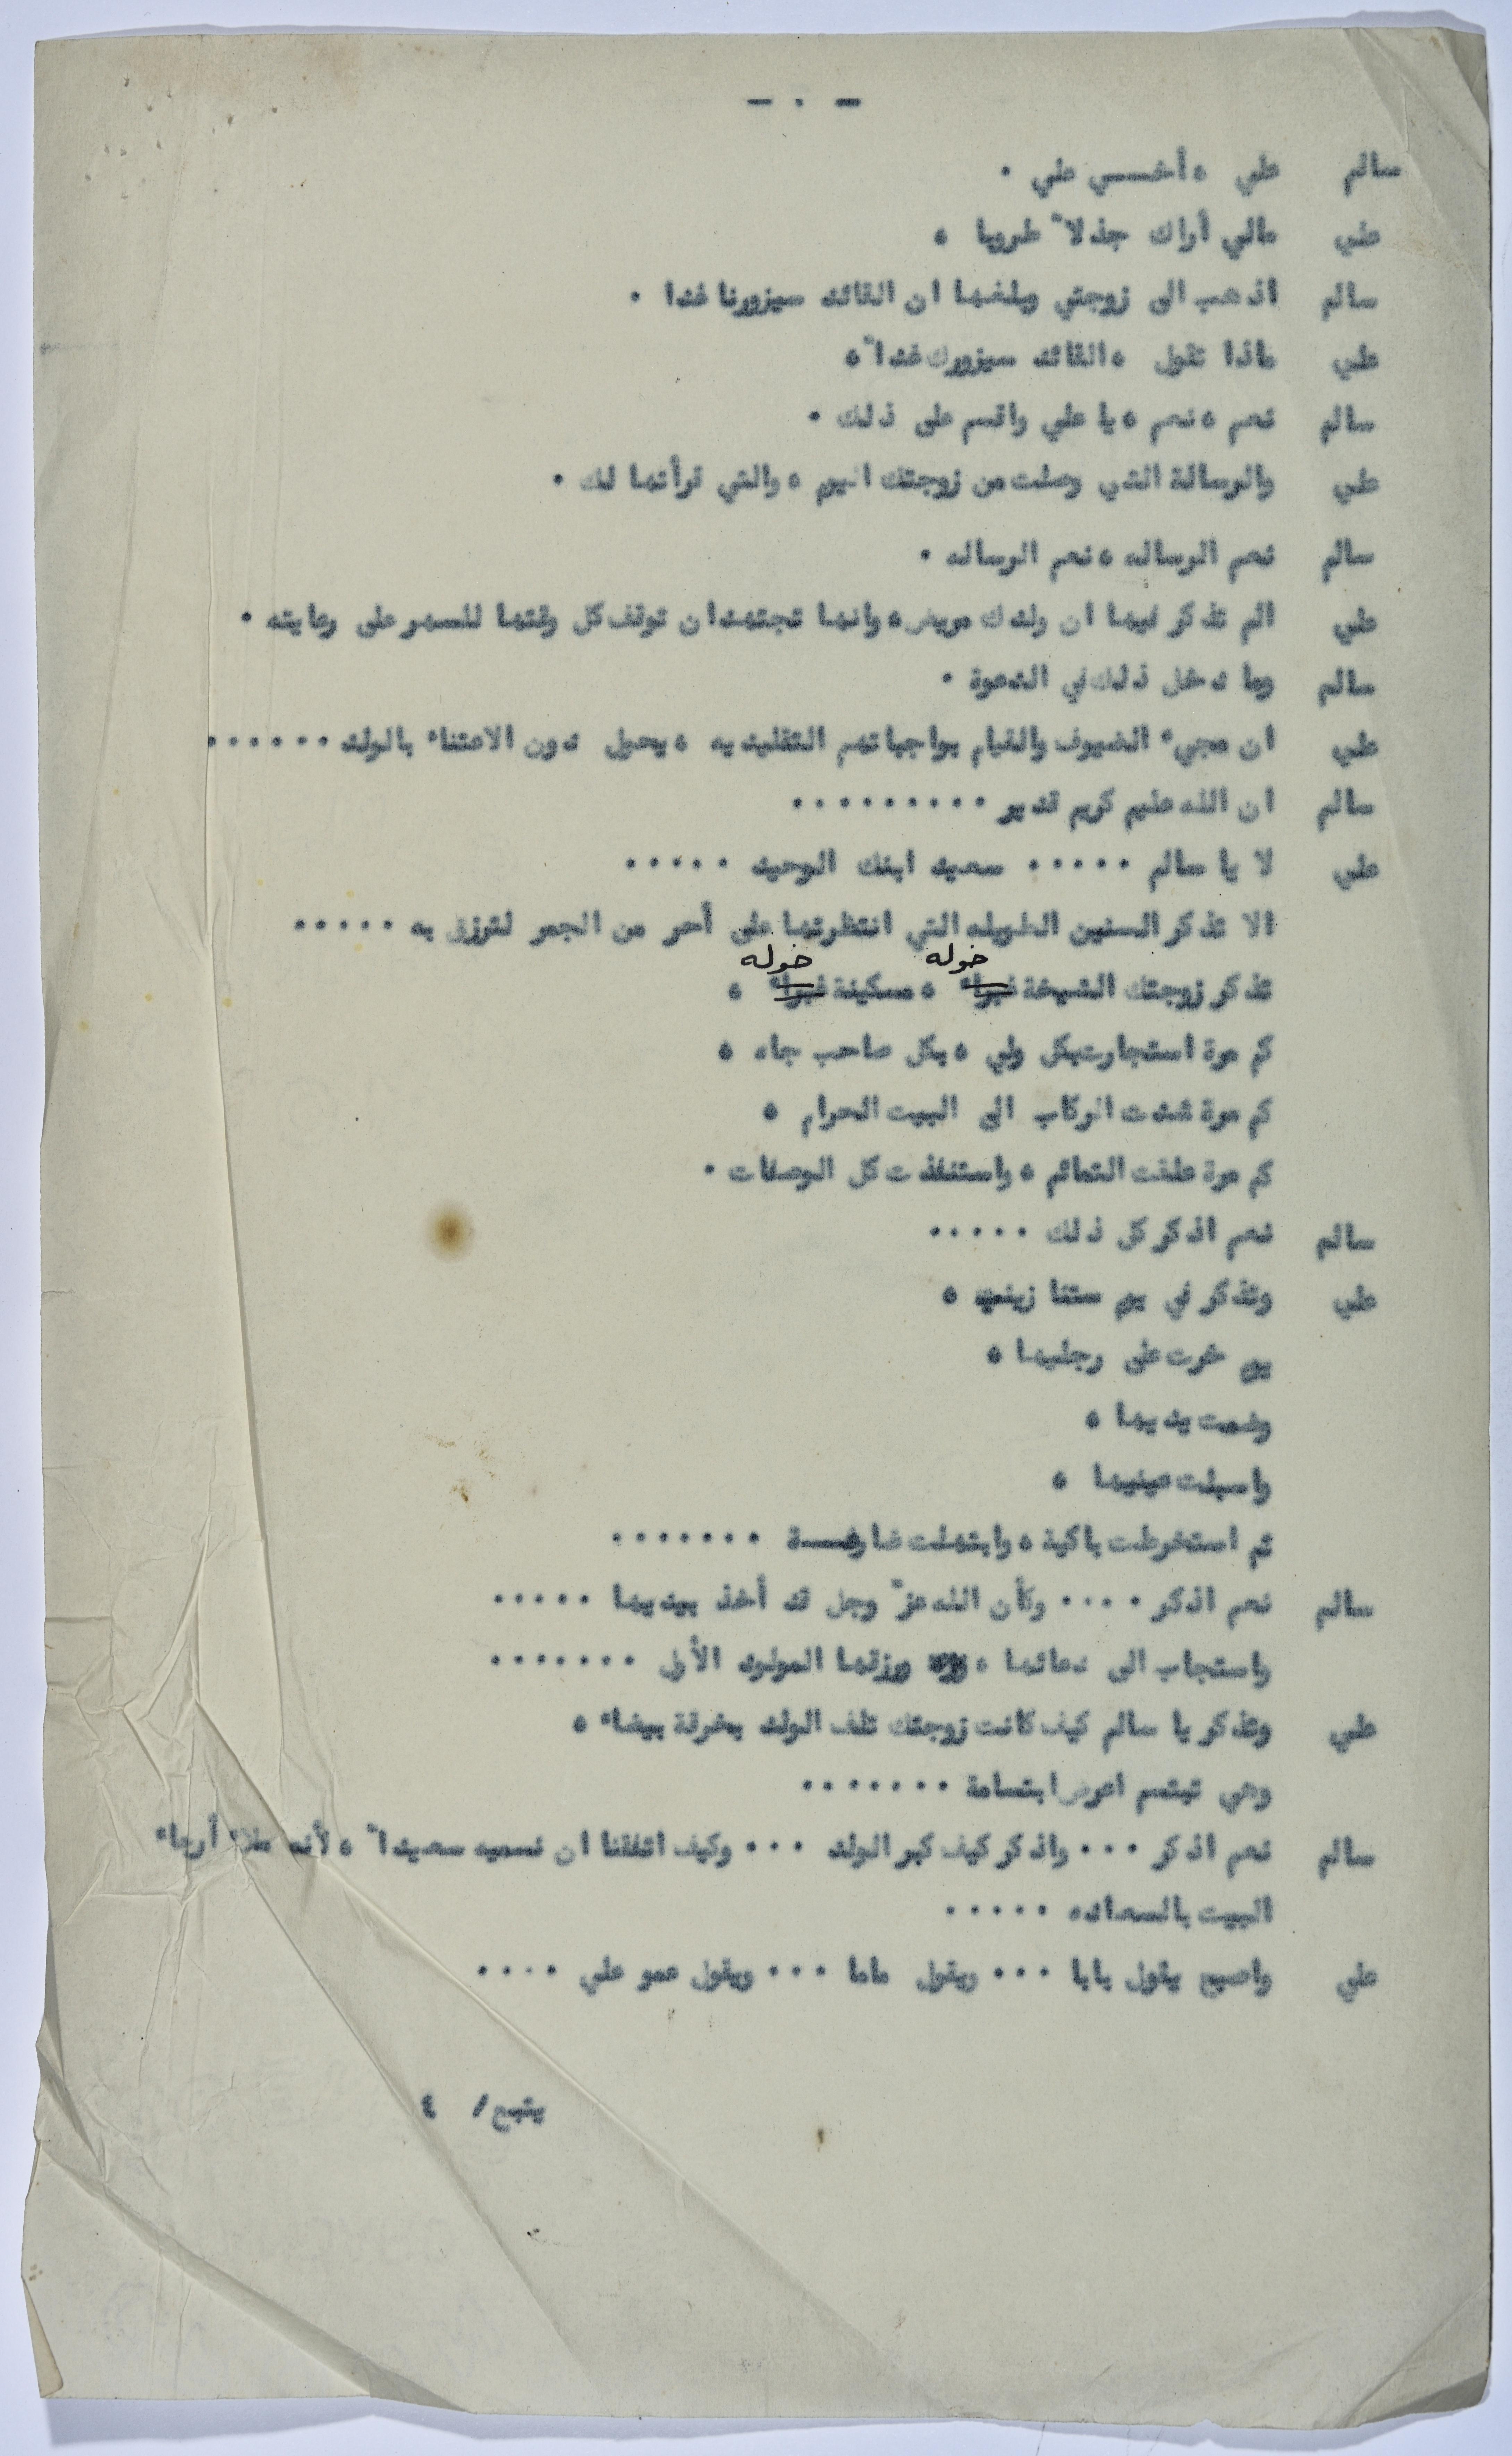 - ٠ -
سالم علي ، أخسي علي ٠
علي مالي أراك جذلا" طروبا ،
سالم اذهب الى زوجتي وبلغها ان القائد سيزورنا غدا ٠
علي ماذا تقول ، القائد سيزورك غدا" ،
سالم نعم ، نعم ، يا علي واقسم على ذلك ٠
علي والرسالة التي وصلت من زوجتك اليوم ، والتي قرأتها لك ٠
سالم نعم الرساله ، نعم الرساله ٠
علي الم تذكر فيها ان ولدك مريض ، وانها تجتهد ان توقف كل وقتها للسهر على رعايته ٠
سالم وما دخل ذلك في الدعوة ٠
علي ان مجيء الضيوف والقيام بواجباتهم التقليديه ، يحول دون الاعتناء بالولد ٠٠٠٠٠٠
سالم ان الله عليم كريم قدير ٠٠٠٠٠٠٠٠٠
علي لا يا سالم ٠٠٠٠٠ سعيد ابنك الوحيد ٠٠٠٠٠
الا تذكر السنين الطويله التي انتظرتها على أحر من الجمر لترزق به ٠٠٠٠٠
خوله خوله
تذكر زوجتك الشيخة غبراء ، مسكينة غبراء ،
كم مرة استجارت بكل ولي ، بكل صاحب جاه ،
كم مرة شدت الركاب الى البيت الحرام ،
كم مرة علقت التمائم ، واستنفذت كل الوصفات ٠
سالم نعم اذكر كل ذلك ٠٠٠٠٠
علي وتذكر في يوم ستنا زينب ،
يوم خرت على رجليها ،
وضمت يديها ،
واسبلت عينيها ،
ثم استخرطت باكية ، وابتهلت ضارعـــة ٠٠٠٠٠٠٠
سالم نعم اذكر ٠٠٠٠ وكأن الله عز" وجل قد أخذ بيديها ٠٠٠٠٠
واستجاب الى دعائها ، ورزقها المولود الأول ٠٠٠٠٠٠٠
علي وتذكر يا سالم كيف كانت زوجتك تلف الولد بخرقة بيضاء ،
وهي تبتسم اعرض ابتسامة ٠٠٠٠٠٠٠
سالم نعم اذكر ٠٠٠ واذكر كيف كبر الولد ٠٠٠ وكيف اتفقنا ان نسميه سعيدا" ، لأنه ملاء أرجاء
البيت بالسعاده ٠٠٠٠٠
علي واصبح يقول بابا ٠٠٠ ويقول ماما ٠٠٠ ويقول عمو علي ٠٠٠٠
يتبع/ ٤